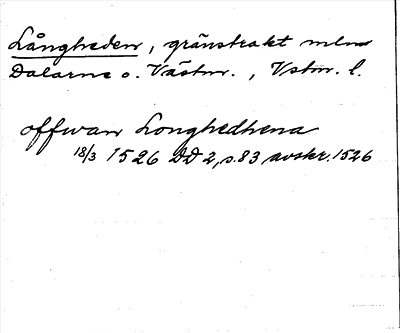 Långheden, gränstrakt mln
Dalarne o. Västm., Vstm. l.
offwan Longhedhena
18/3 1526 DD 2, s. 83 avskr. 1526